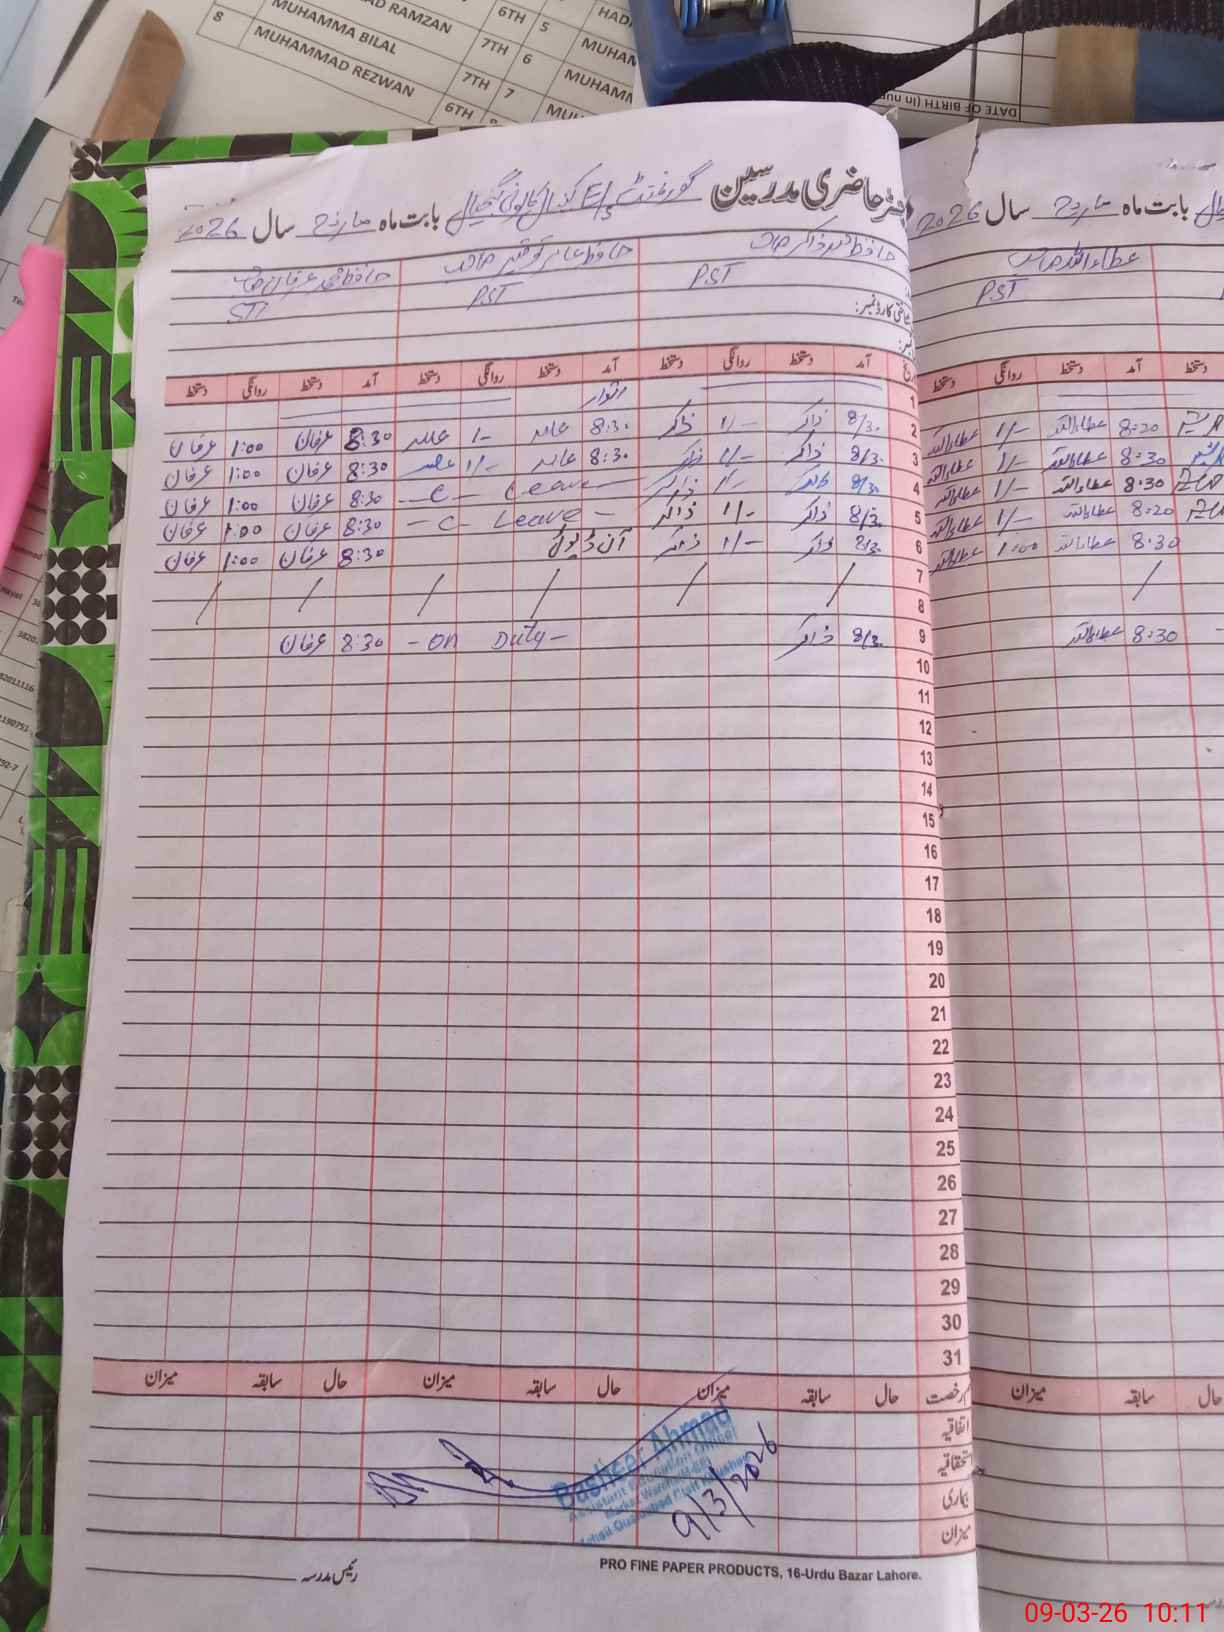 8 MUHAMMAD REZWAN 6TH
MUHAMMA BILAL 7TH 7
RAMZAN 7TH 6 MUHAMM
6TH 5 MUHAM
HADI
DATE OF BIRTH (in
حاضری مدرسین گورنمنٹ E/S بابت ماہ مارچ سال 2026
حافظ محمد ذاکر صاحب حافظ عامر صاحب حافظ محمد عرفان صاحب
PST PST STI
شناختی کارڈ نمبر:
آمد دستخط روانگی دستخط آمد دستخط روانگی دستخط آمد دستخط روانگی دستخط
1 اتوار
2 8/30 ذاکر 1/- ذاکر 8:30 عامر 1/- عامر 8:30 عرفان 1:00 عرفان
3 8/30 ذاکر 1/- ذاکر 8:30 عامر 1/- عامر 8:30 عرفان 1:00 عرفان
4 8/30 ذاکر 1/- ذاکر - C - Leave 8:30 عرفان 1:00 عرفان
5 8/30 ذاکر 1/- ذاکر - C - Leave - 8:30 عرفان 1:00 عرفان
6 8/30 ذاکر 1/- ذاکر آن ڈیوٹی 8:30 عرفان 1:00 عرفان
7
8
9 8/30 ذاکر - on Duty - 8:30 عرفان
10
11
12
13
14
15
16
17
18
19
20
21
22
23
24
25
26
27
28
29
30
31
رخصت حال سابقہ میزان حال سابقہ میزان حال سابقہ میزان
اتفاقیہ
استحقاقیہ
بیماری
میزان
Basheer Ahmad
Assistant Education Officer
9/3/2026
رئیس مدرسہ
PRO FINE PAPER PRODUCTS, 16-Urdu Bazar Lahore.
بابت ماہ مارچ سال 2026
عطاء اللہ صاحب
PST
آمد دستخط روانگی دستخط
8:20 عطاءاللہ 1/- عطاءاللہ
8:30 عطاءاللہ 1/- عطاءاللہ
8:30 عطاءاللہ 1/- عطاءاللہ
8:20 عطاءاللہ 1/- عطاءاللہ
8:30 عطاءاللہ 1:00 عطاءاللہ
8:30 عطاءاللہ
حال سابقہ میزان
09-03-26 10:11